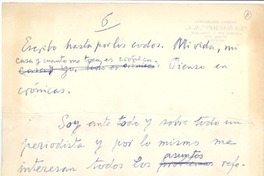 6
Escribo hasta por los codos. Mi vida, mi
casa y cuanto me
yo, todo es crónica. Pienso en
crónicas.
Soy ante todo y sobre todo un
periodista y por lo mismo me
asuntos
interesan todos los